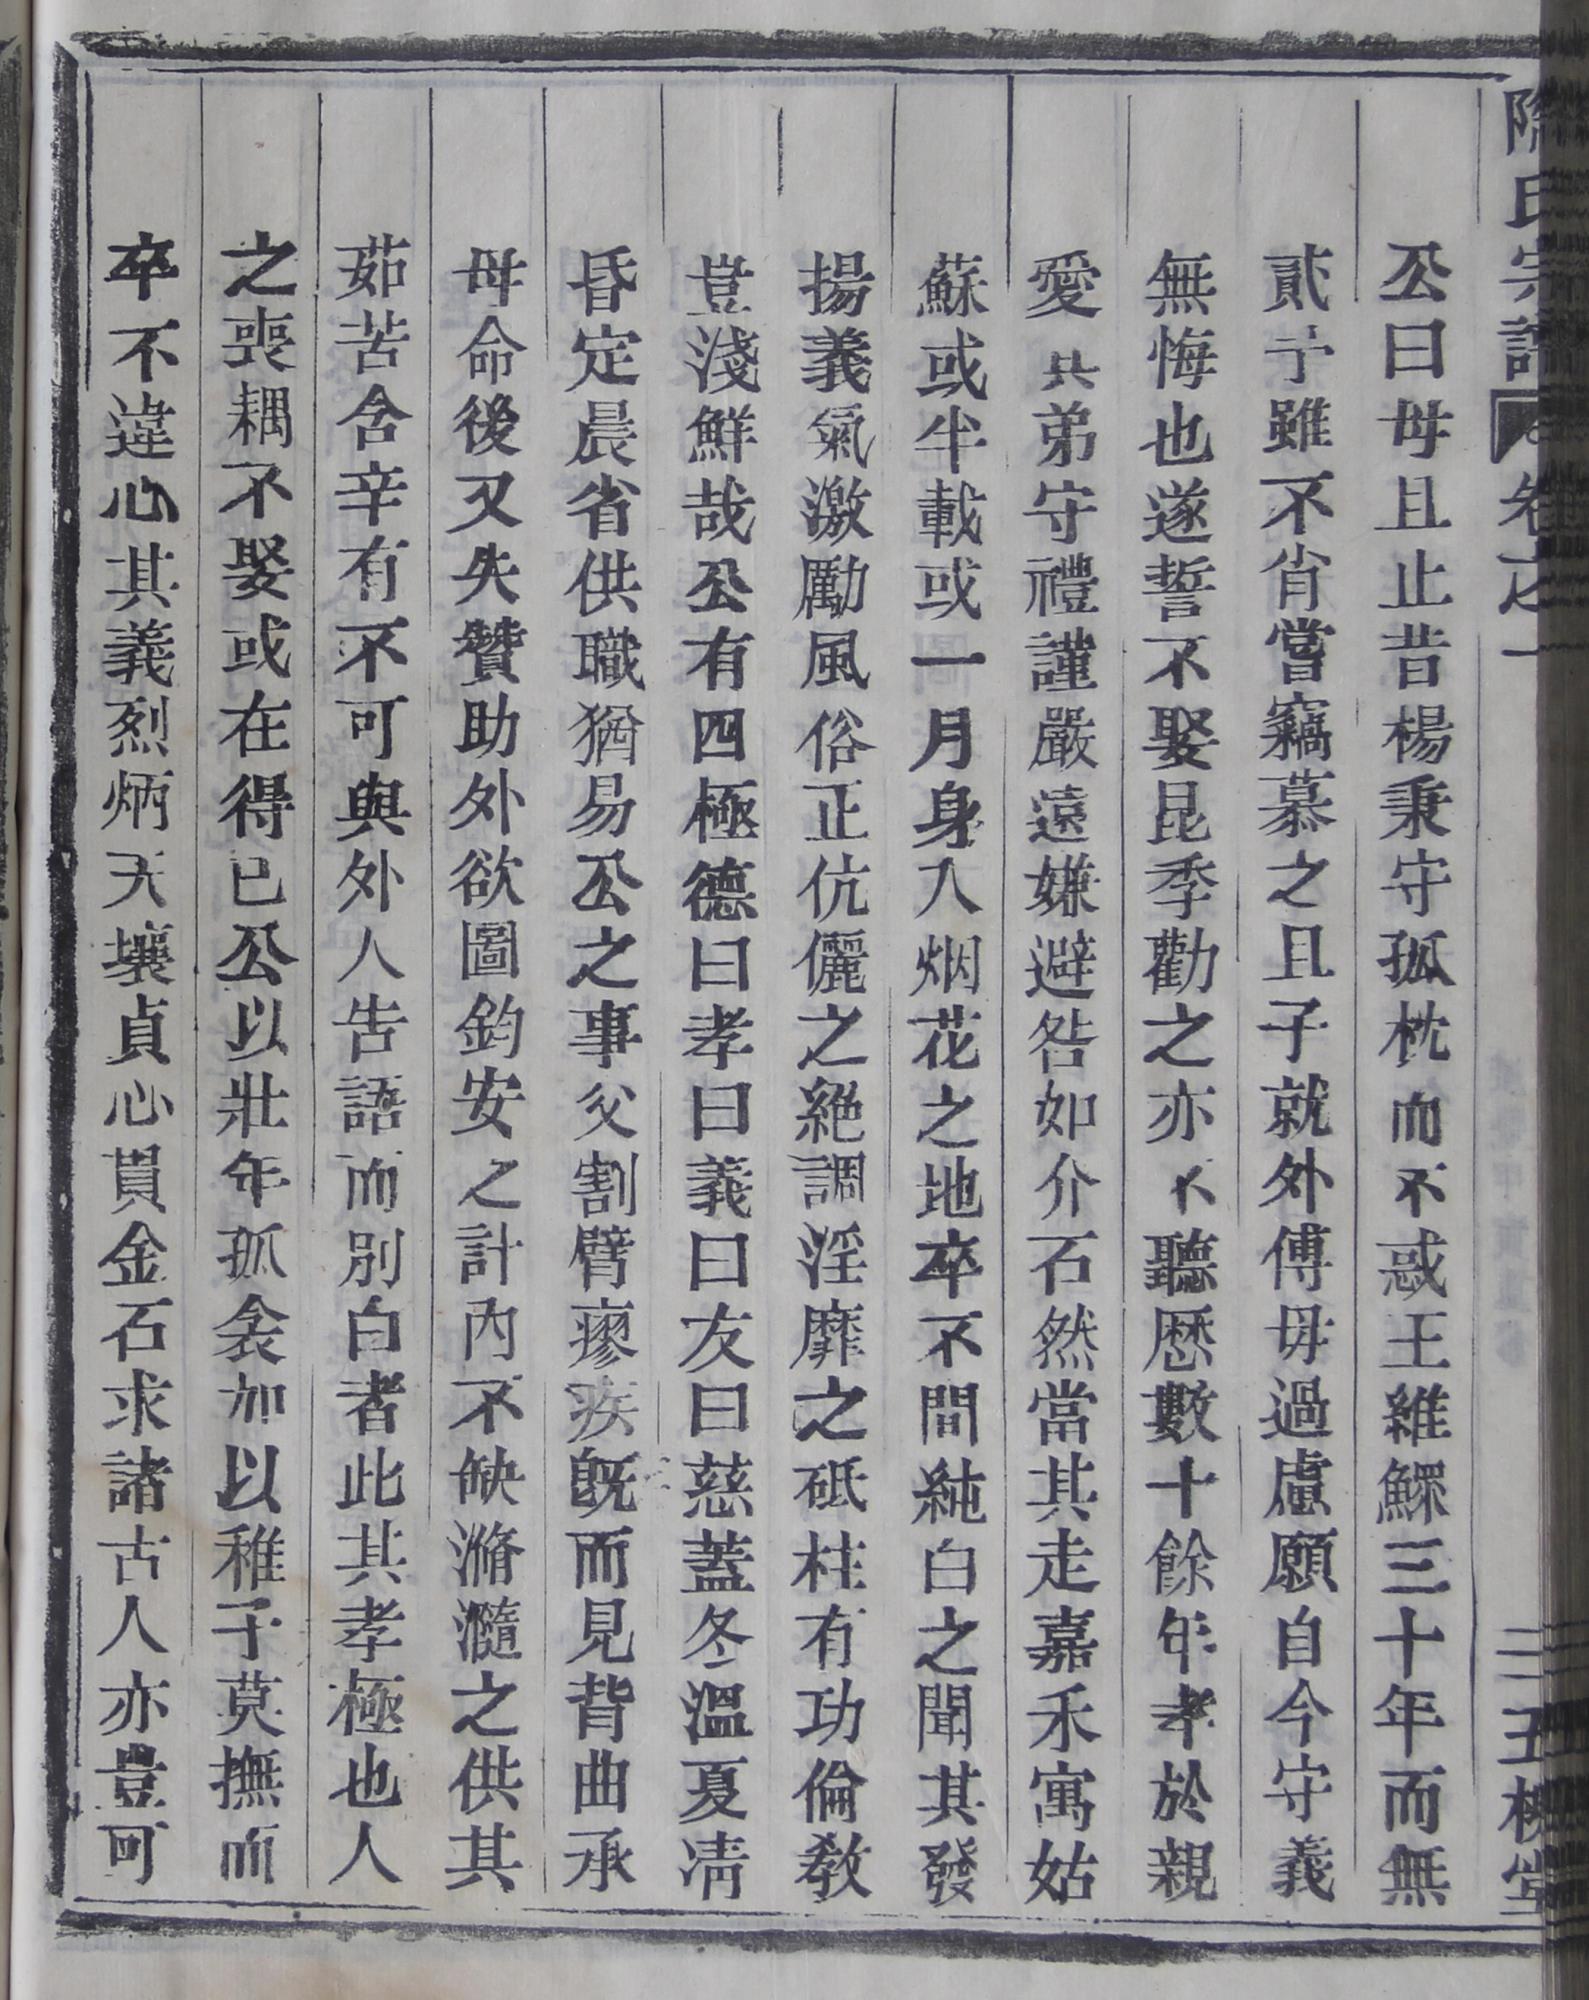 氏宗譜 卷之一 五柳堂
公曰毋且止昔楊秉守孤枕而不惑王維鰥三十年而無
貳予雖不肖嘗竊慕之且子就外傅毋過慮願自今守義
無悔也遂誓不娶昆季勸之亦不聽歷數十餘年孝於親
愛其弟守禮謹嚴遠嫌避咎如介石然當其走嘉禾寓姑
蘇或半載或一月身入烟花之地卒不間純白之聞其發
揚義氣激勵風俗正伉儷之絕調淫靡之砥柱有功倫教
豈淺鮮哉公有四極德曰孝曰義曰友曰慈蓋冬溫夏凊
昏定晨省供職猶易公之事父割臂瘳疾既而見背曲承
母命後又失贊助外欲圖鈞安之計內不缺滫瀡之供其
茹苦含辛有不可與外人告語而別白者此其孝極也人
之喪耦不娶或在得已公以壯年孤衾加以稚子莫撫而
卒不違心其義烈炳天壤貞心貫金石求諸古人亦豈可